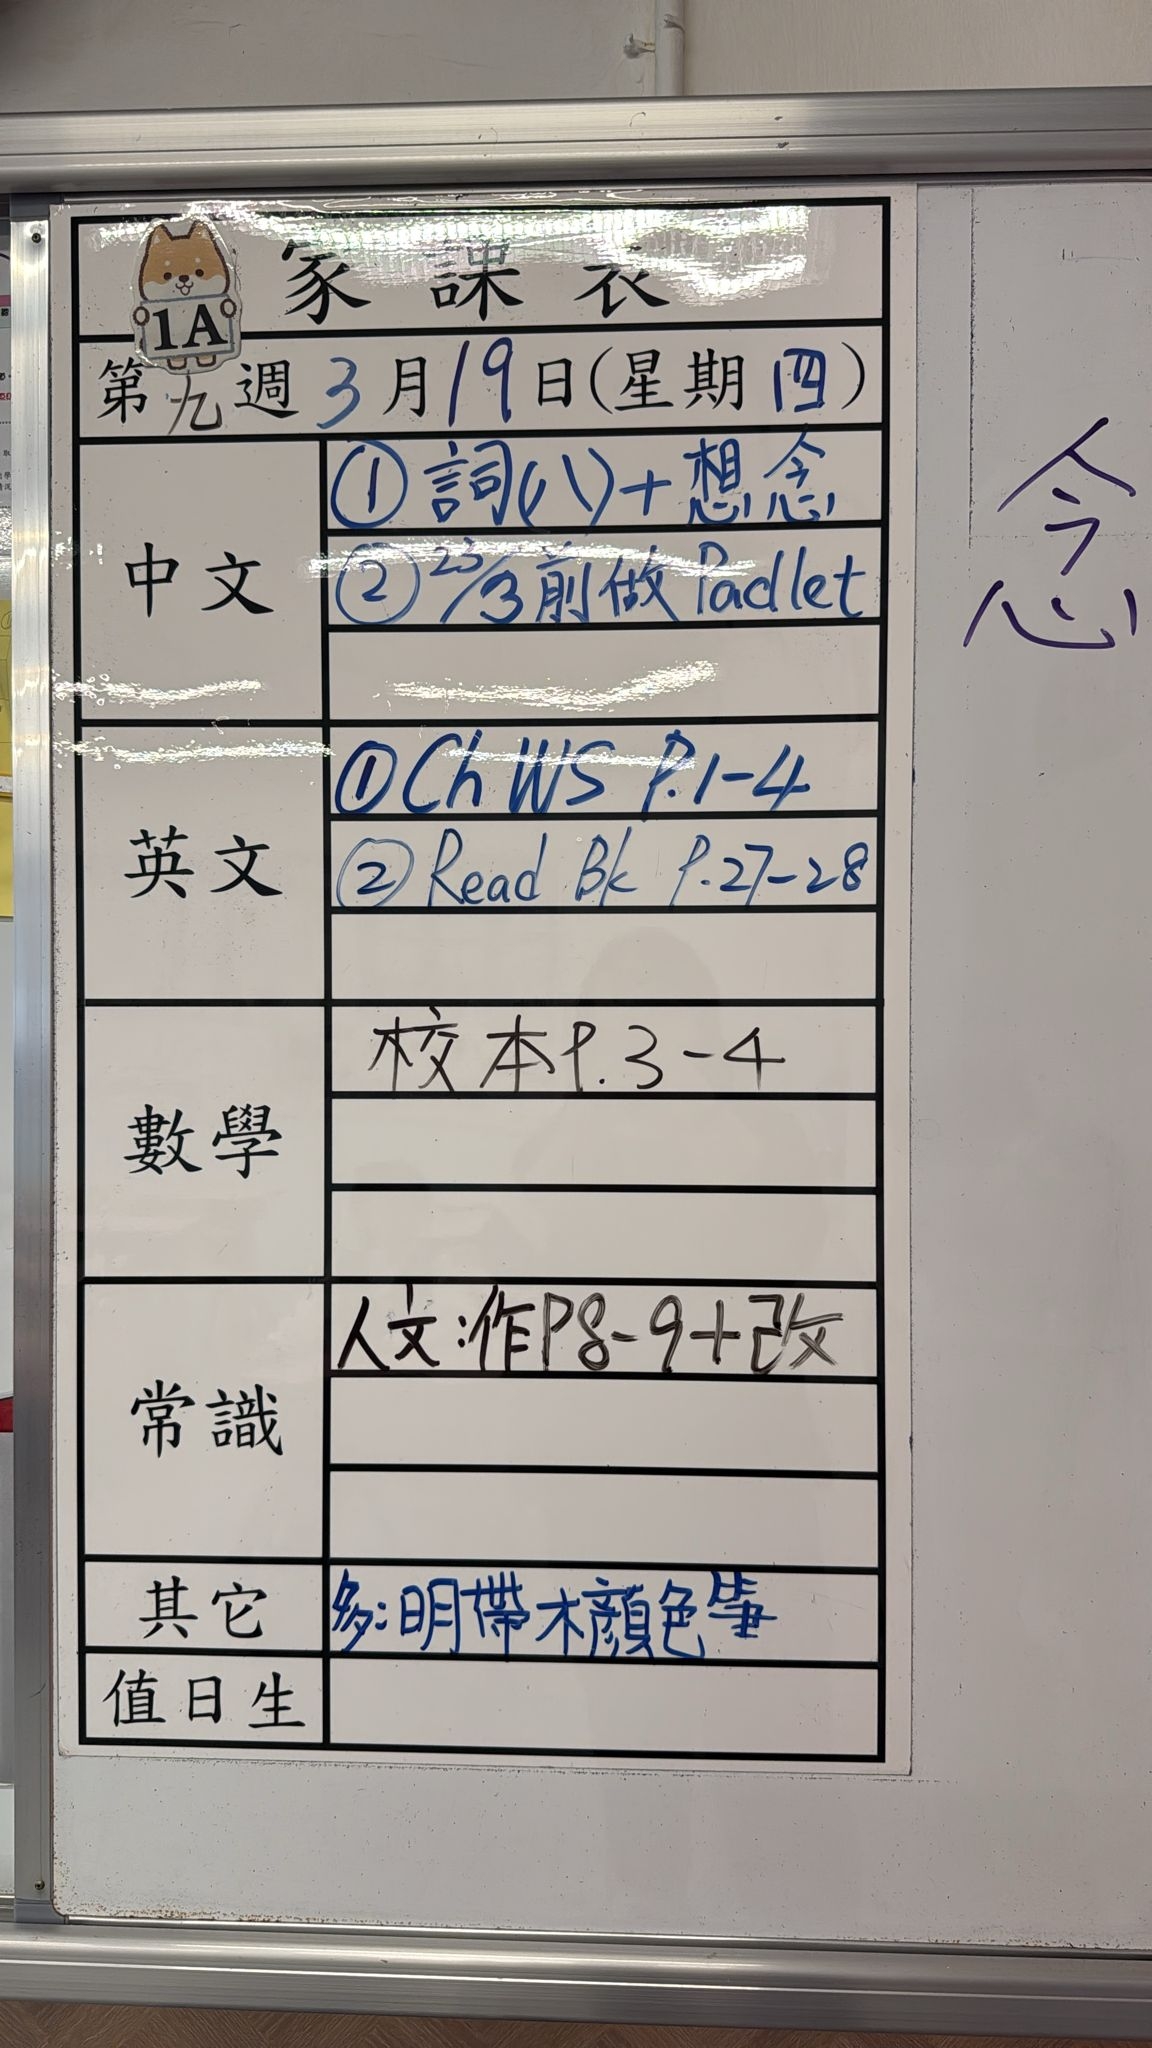 家課表
1A
第九週3月19日(星期四)
中文
①詞(八)+想念
②23/3前做Padlet
英文
①Ch WS P.1-4
②Read Bk P.27-28
數學
校本P.3-4
常識
人文:作P8-9+改
其它
多:明帶木顏色筆
值日生
念